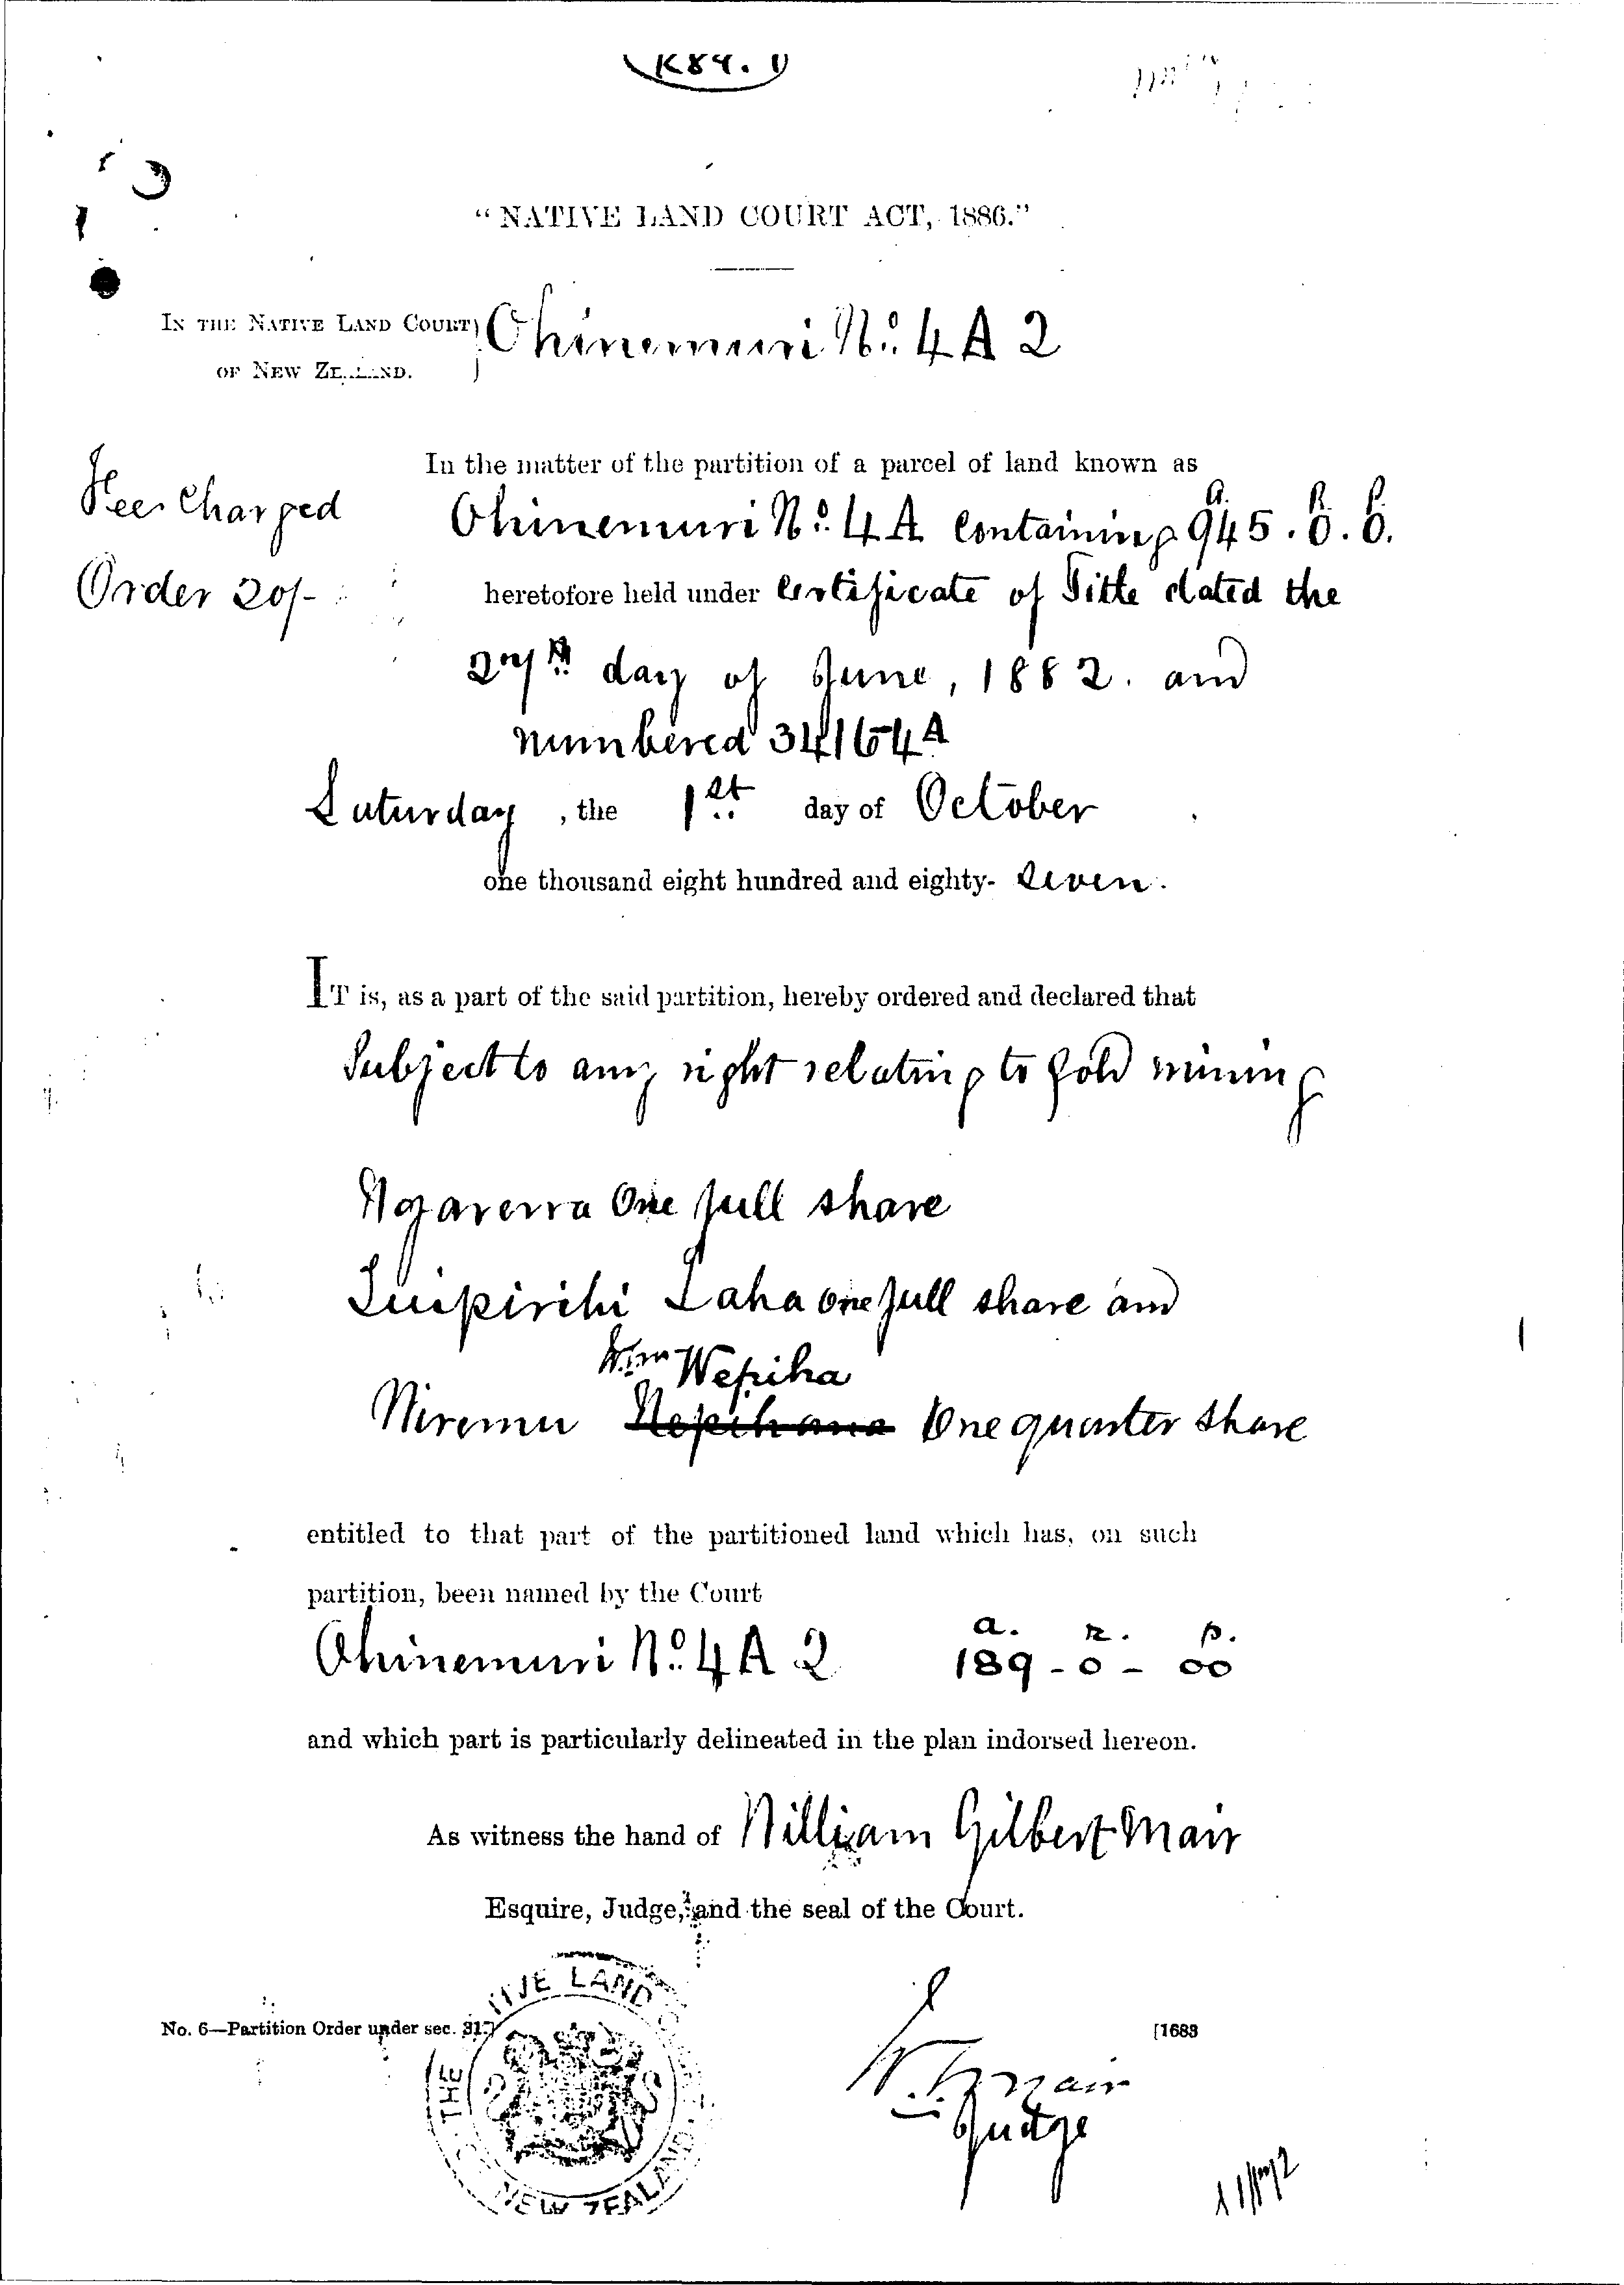 K84.
"NATIVE LAND COURT ACT, 1886."
IN THE NATIVE LAND COURT
OF NEW ZEALAND.
Ohinemuri No. 4 A 2
Fees Charged
Order 20/-
In the matter of the partition of a parcel of land known as
Ohinemuri No. 4 A containing 945. 0. 0.
heretofore held under Certificate of Title dated the
27th day of June, 1882. and
numbered
Saturday, the 1st day of October
one thousand eight hundred and eighty- seven.
IT is, as a part of the said partition, hereby ordered and declared that
Subject to any right relating to gold mining
One full share
Taha one full share and
Wepiha
Wiremu One quarter share
entitled to that part of the partitioned land which has, on such
partition, been named by the Court
a. r. p.
Ohinemuri No. 4 A 2 189 - 0 - 00
and which part is particularly delineated in the plan indorsed hereon.
As witness the hand of William Gilbert Mair
Esquire, Judge, and the seal of the Court.
No. 6—Partition Order under sec. 31.]
[1683
THE NATIVE LAND
NEW ZEALAND
Mair
Judge